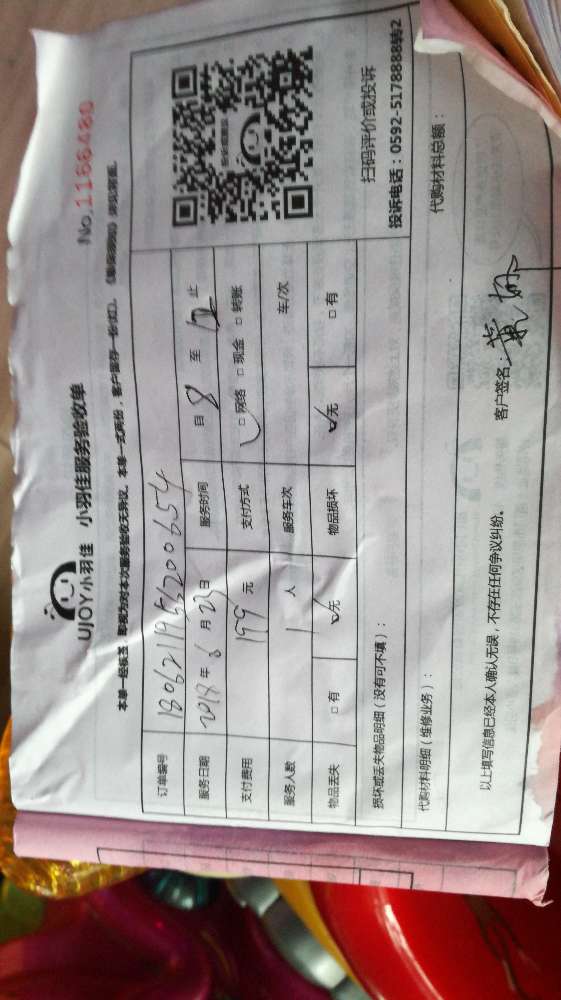 UJOY小羽佳 小羽佳服务验收单
No.1166480
本单一经核签 即视为对本次服务验收无异议。本单一式两份,客户留存一份(红)。
订单编号 180621195200654
服务日期 2018年6月23日 服务时间 自8至12止
支付费用 199元 支付方式 ☑网络 □现金 □转账
服务人数 1人 服务车次 车/次
物品丢失 □有 ☑无 物品损坏 ☑无 □有
扫码评价或投诉
投诉电话:0592-5178888转2
损坏或丢失物品明细(没有可不填):
代购材料明细(维修业务): 代购材料总额:
以上填写信息已经本人确认无误,不存在任何争议纠纷。 客户签名: